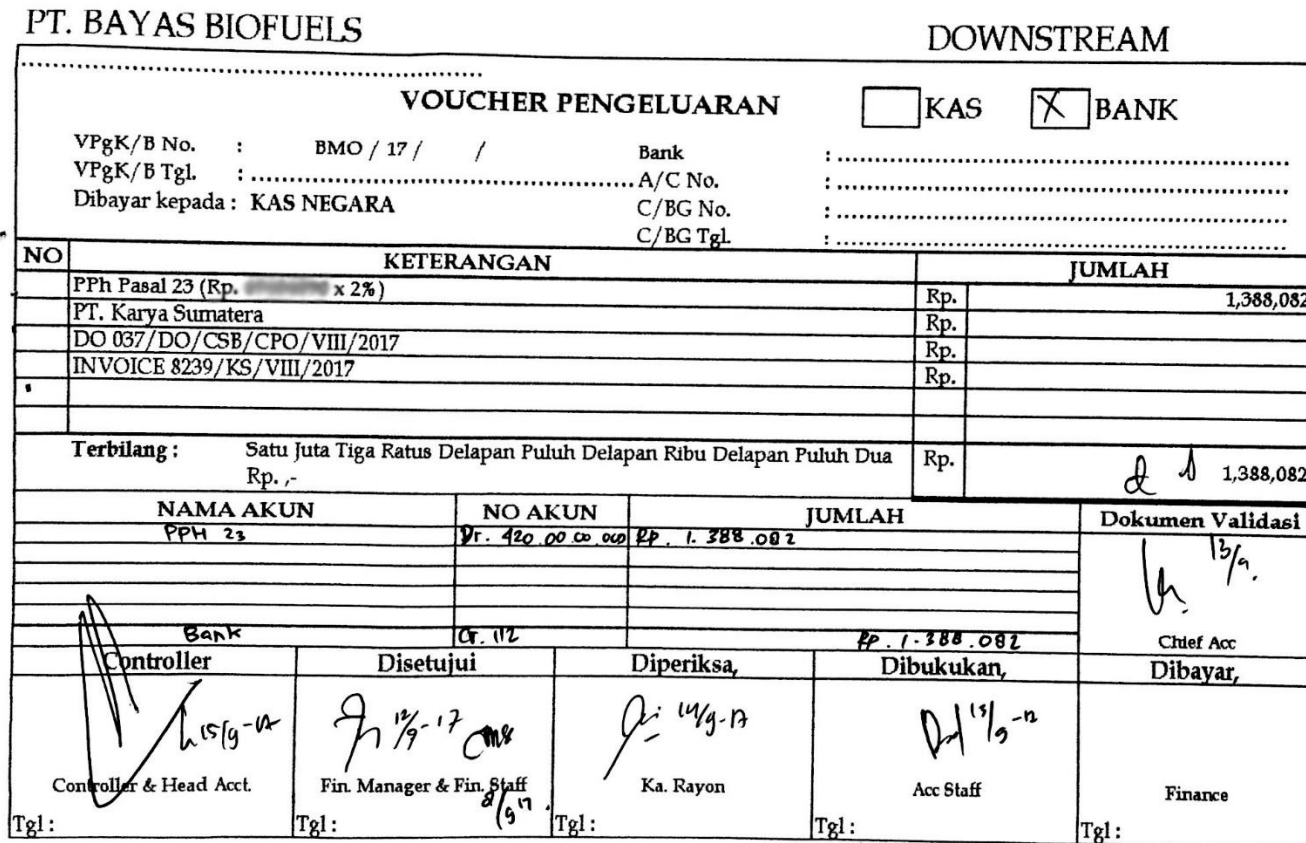 PT. BAYAS BIOFUELS
DOWNSTREAM
VOUCHER PENGELUARAN
KAS
X BANK
VPgK/B No. : BMO / 17 / /
VPgK/B Tgl. :
Dibayar kepada : KAS NEGARA
Bank :
A/C No. :
C/BG No. :
C/BG Tgl. :
NO KETERANGAN JUMLAH
PPh Pasal 23 (Rp. x 2%) Rp. 1,388,082
PT. Karya Sumatera Rp.
DO 037/DO/CSB/CPO/VIII/2017 Rp.
INVOICE 8239/KS/VIII/2017 Rp.
Terbilang : Satu Juta Tiga Ratus Delapan Puluh Delapan Ribu Delapan Puluh Dua Rp. 1,388,082
Rp. ,-
NAMA AKUN NO AKUN JUMLAH Dokumen Validasi
PPH 23 Dr. 420.00.00.000 Rp. 1.388.082
13/9.
Bank Cr. 112 Rp. 1.388.082 Chief Acc
Controller Disetujui Diperiksa, Dibukukan, Dibayar,
15/9-17 12/9-17 14/9-17 13/9-17
Controller & Head Acct. Fin. Manager & Fin. Staff Ka. Rayon Acc Staff Finance
Tgl : Tgl : Tgl : Tgl : Tgl :